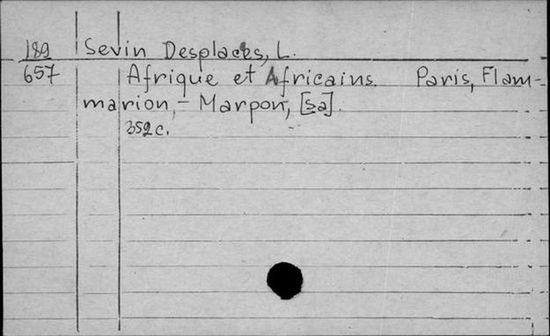 189 Sevin Desplaces, L.
657 Afrique et Africains. Paris, Flam-
marion, - Marpon, [sa].
352 c.